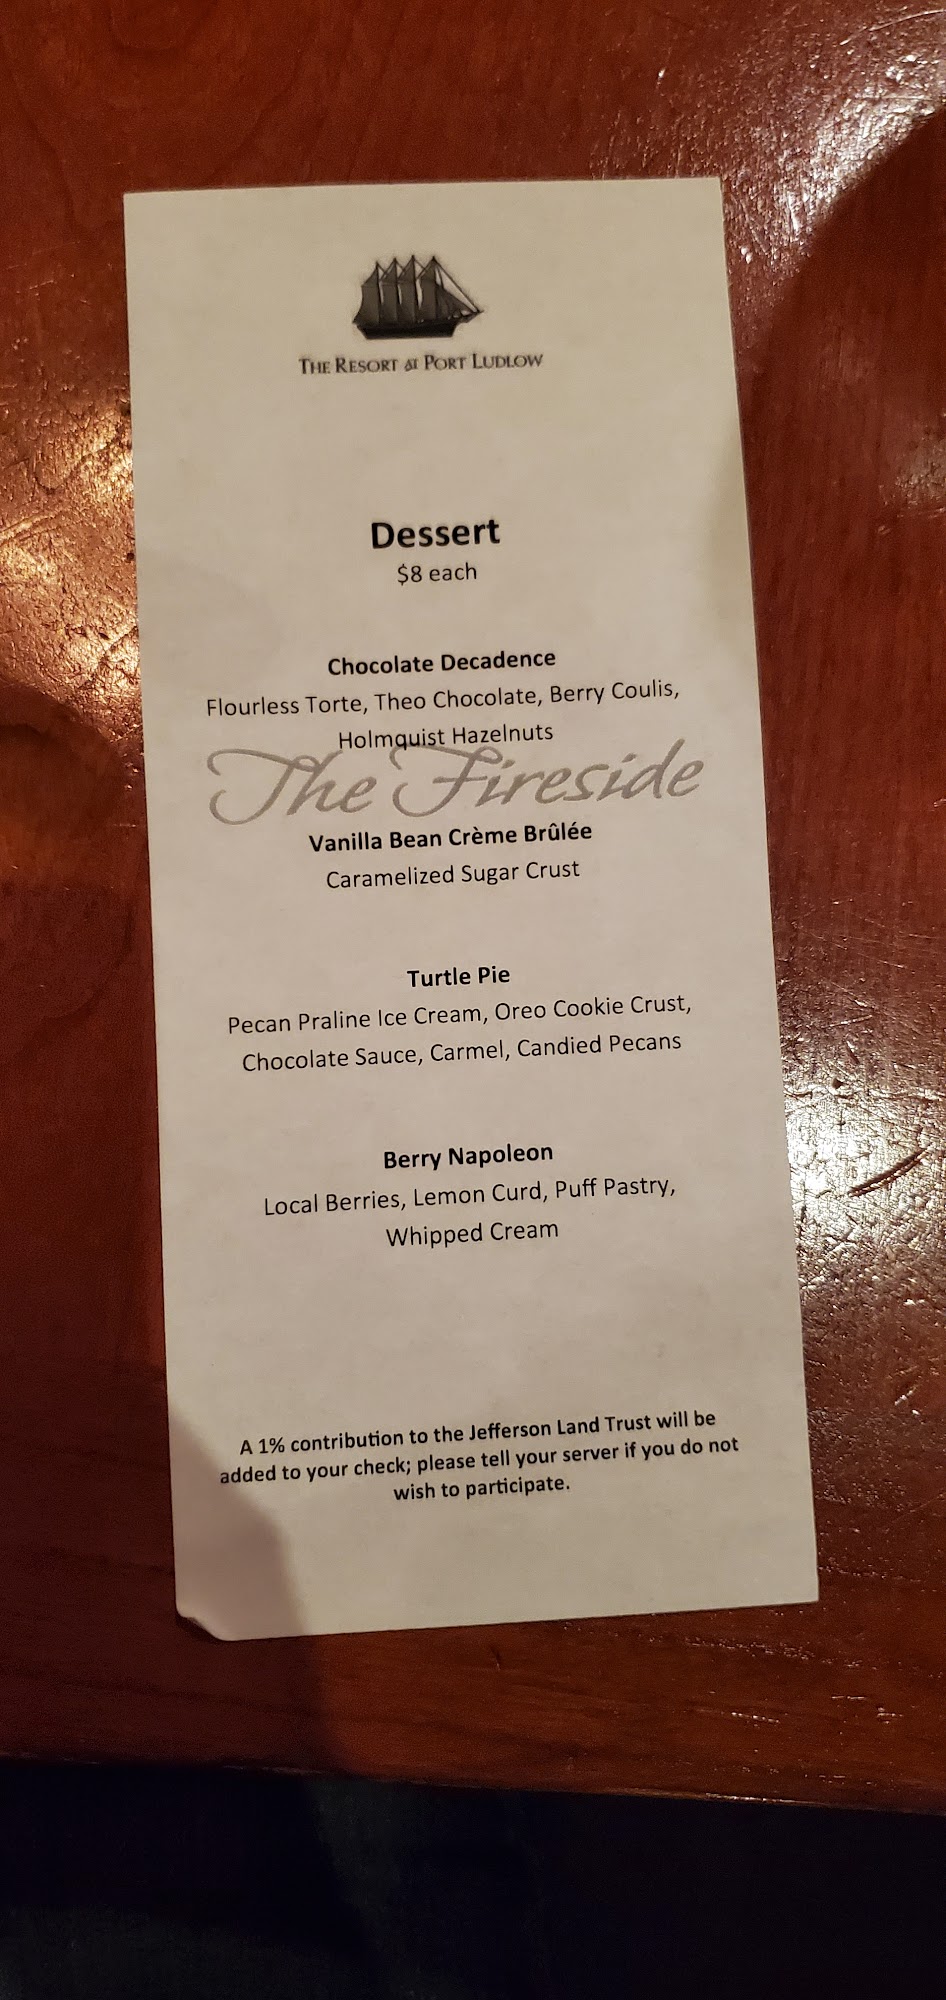 THE RESORT AT PORT LUDLOW
Dessert
$8 each
Chocolate Decadence
Flourless Torte, Theo Chocolate, Berry Coulis,
Holmquist Hazelnuts
The Fireside
Vanilla Bean Crème Brûlée
Caramelized Sugar Crust
Turtle Pie
Pecan Praline Ice Cream, Oreo Cookie Crust,
Chocolate Sauce, Carmel, Candied Pecans
Berry Napoleon
Local Berries, Lemon Curd, Puff Pastry,
Whipped Cream
A 1% contribution to the Jefferson Land Trust will be
added to your check; please tell your server if you do not
wish to participate.